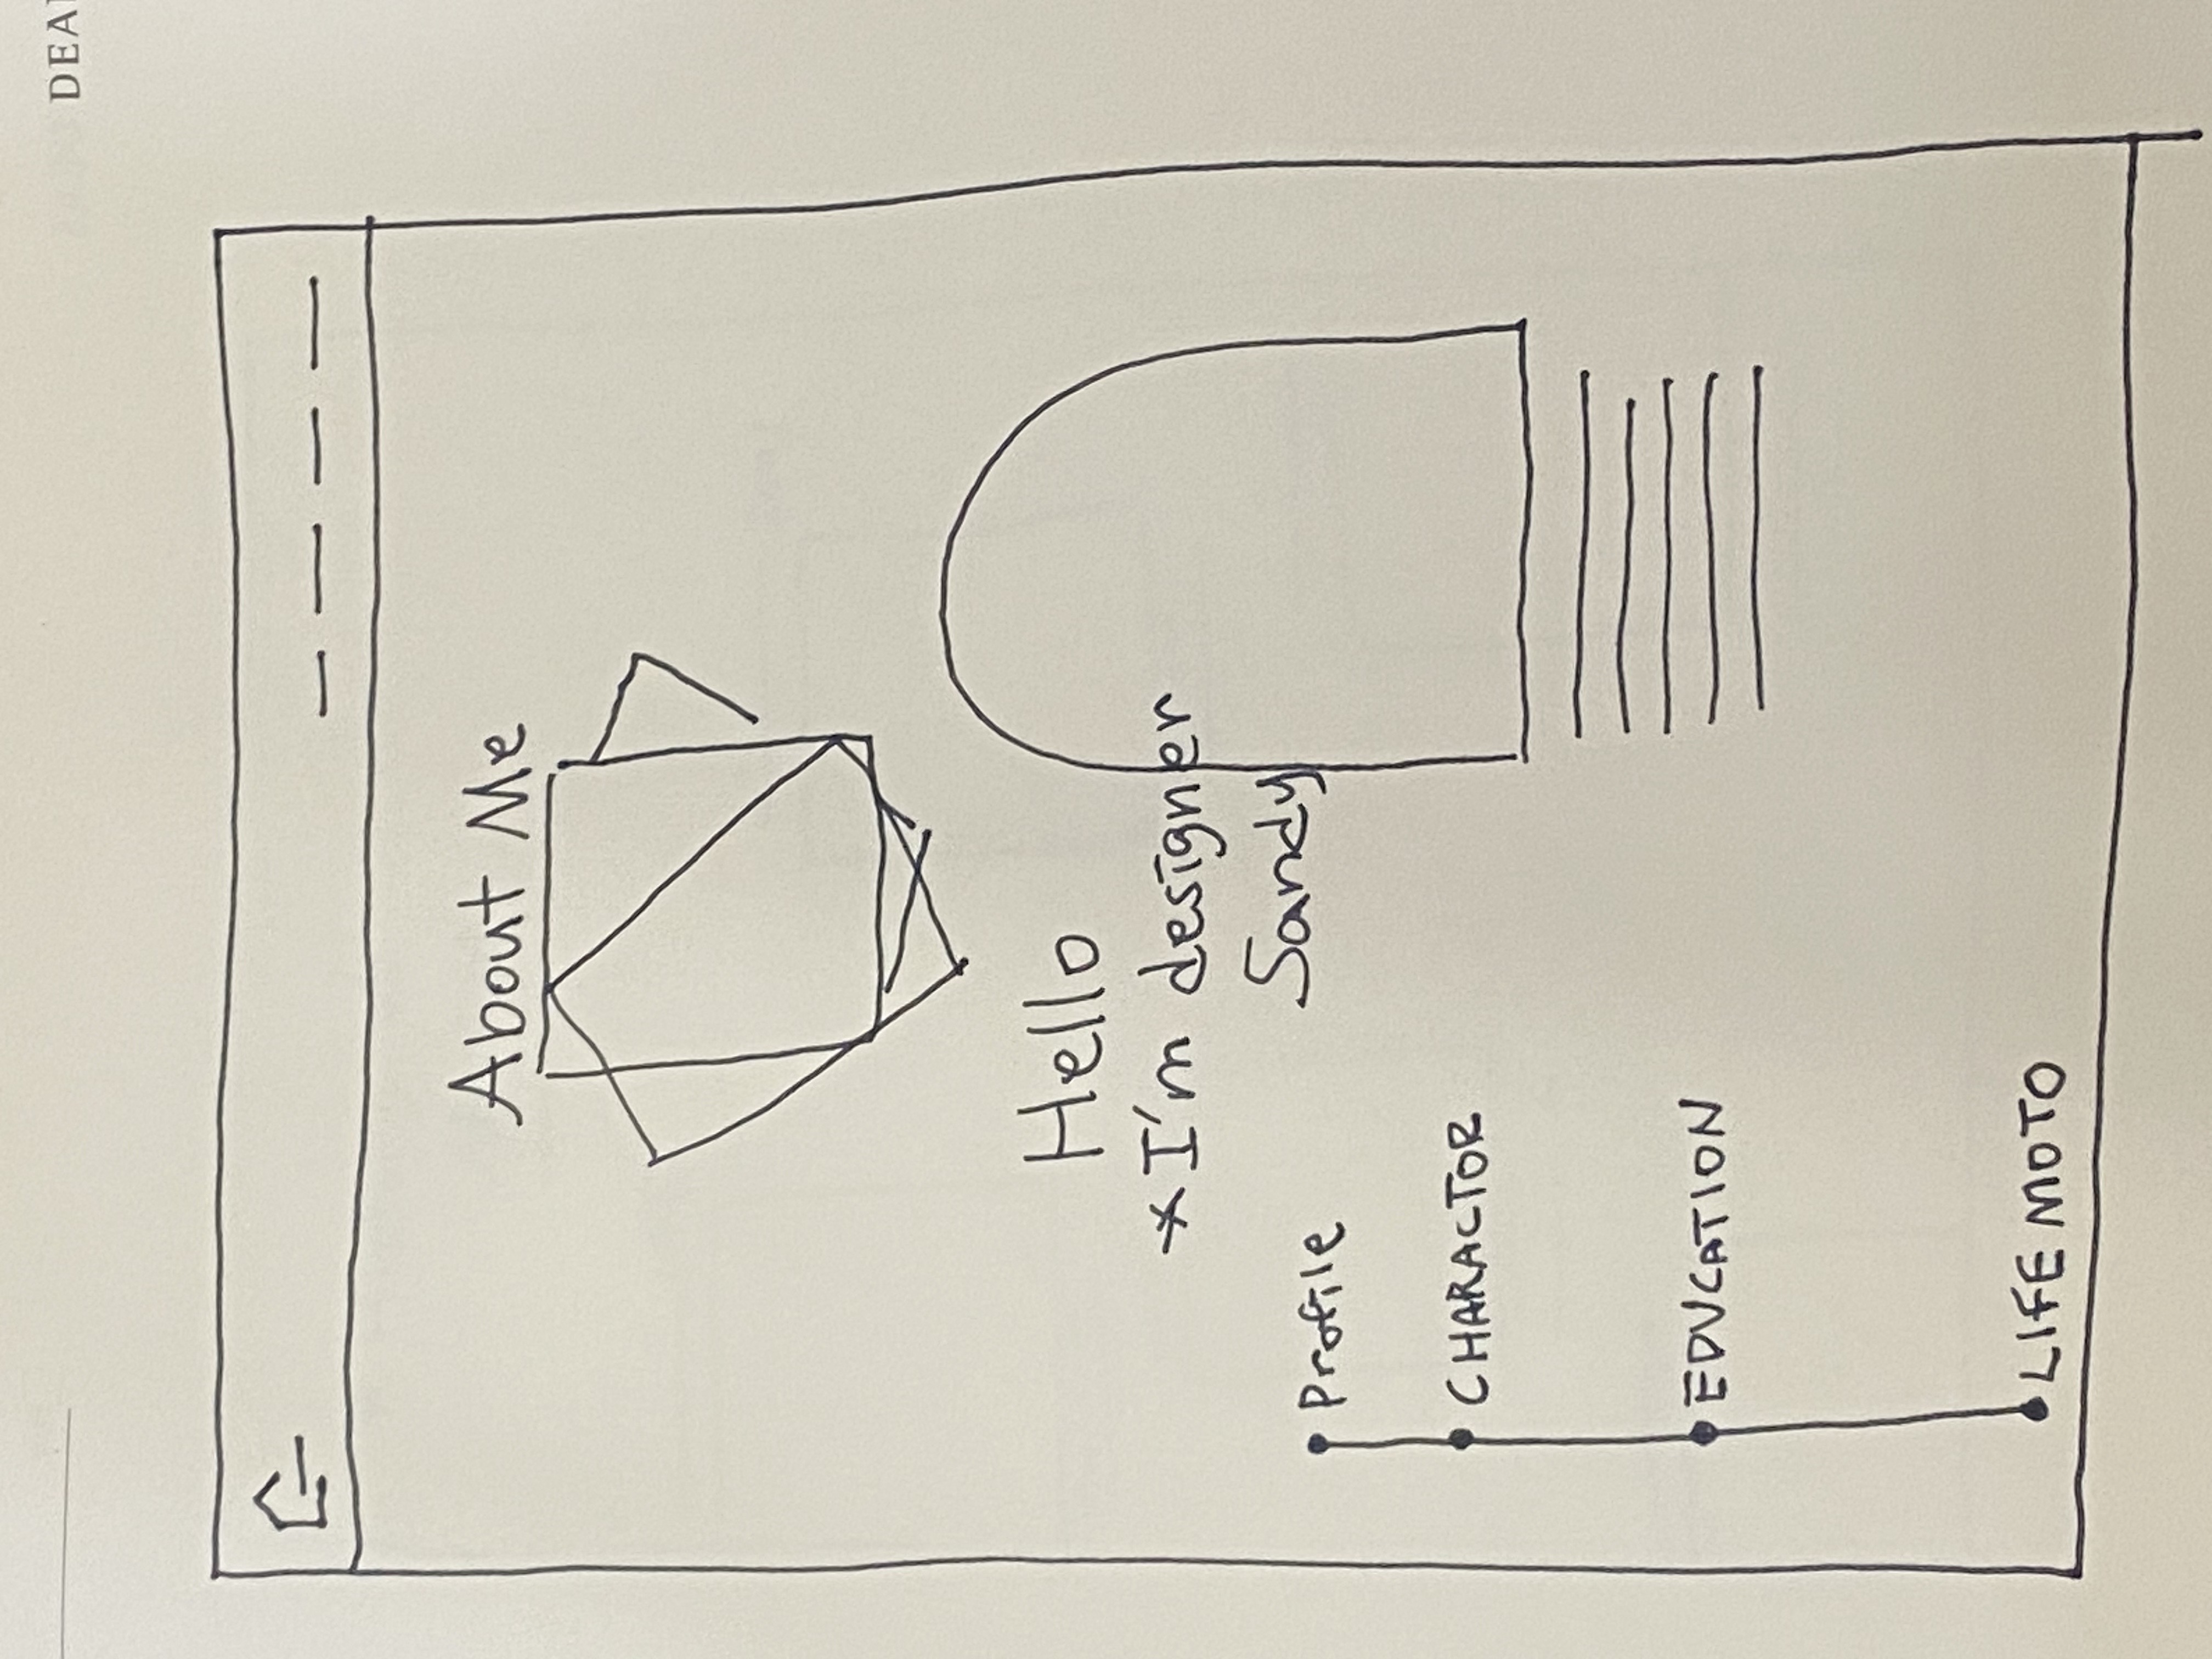 DEA
About Me
Hello
*I'm designer
Sandy
Profile
CHARACTOR
EDUCATION
LIFE MOTO